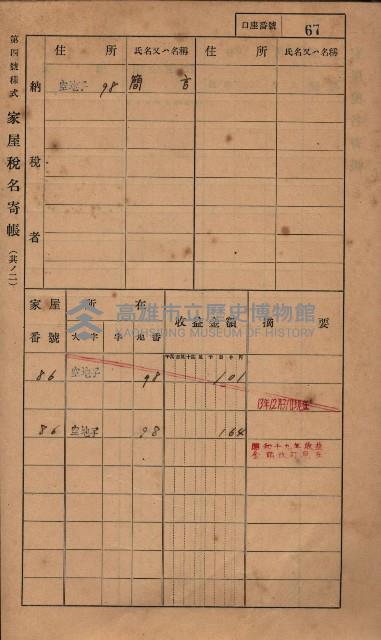 口座番號 67
第四號樣式 家屋稅名寄帳 (其ノ二)
納稅者
住所 氏名又ハ名稱 住所 氏名又ハ名稱
空地子 98 簡言
家屋番號 所在 收益金額 摘要
大字 字 地番
86 空地子 98 101
13年12月31日現在
86 空地子 98 164
昭和十九年收益
金額改訂
高雄市立歷史博物館
KAOHSIUNG MUSEUM OF HISTORY